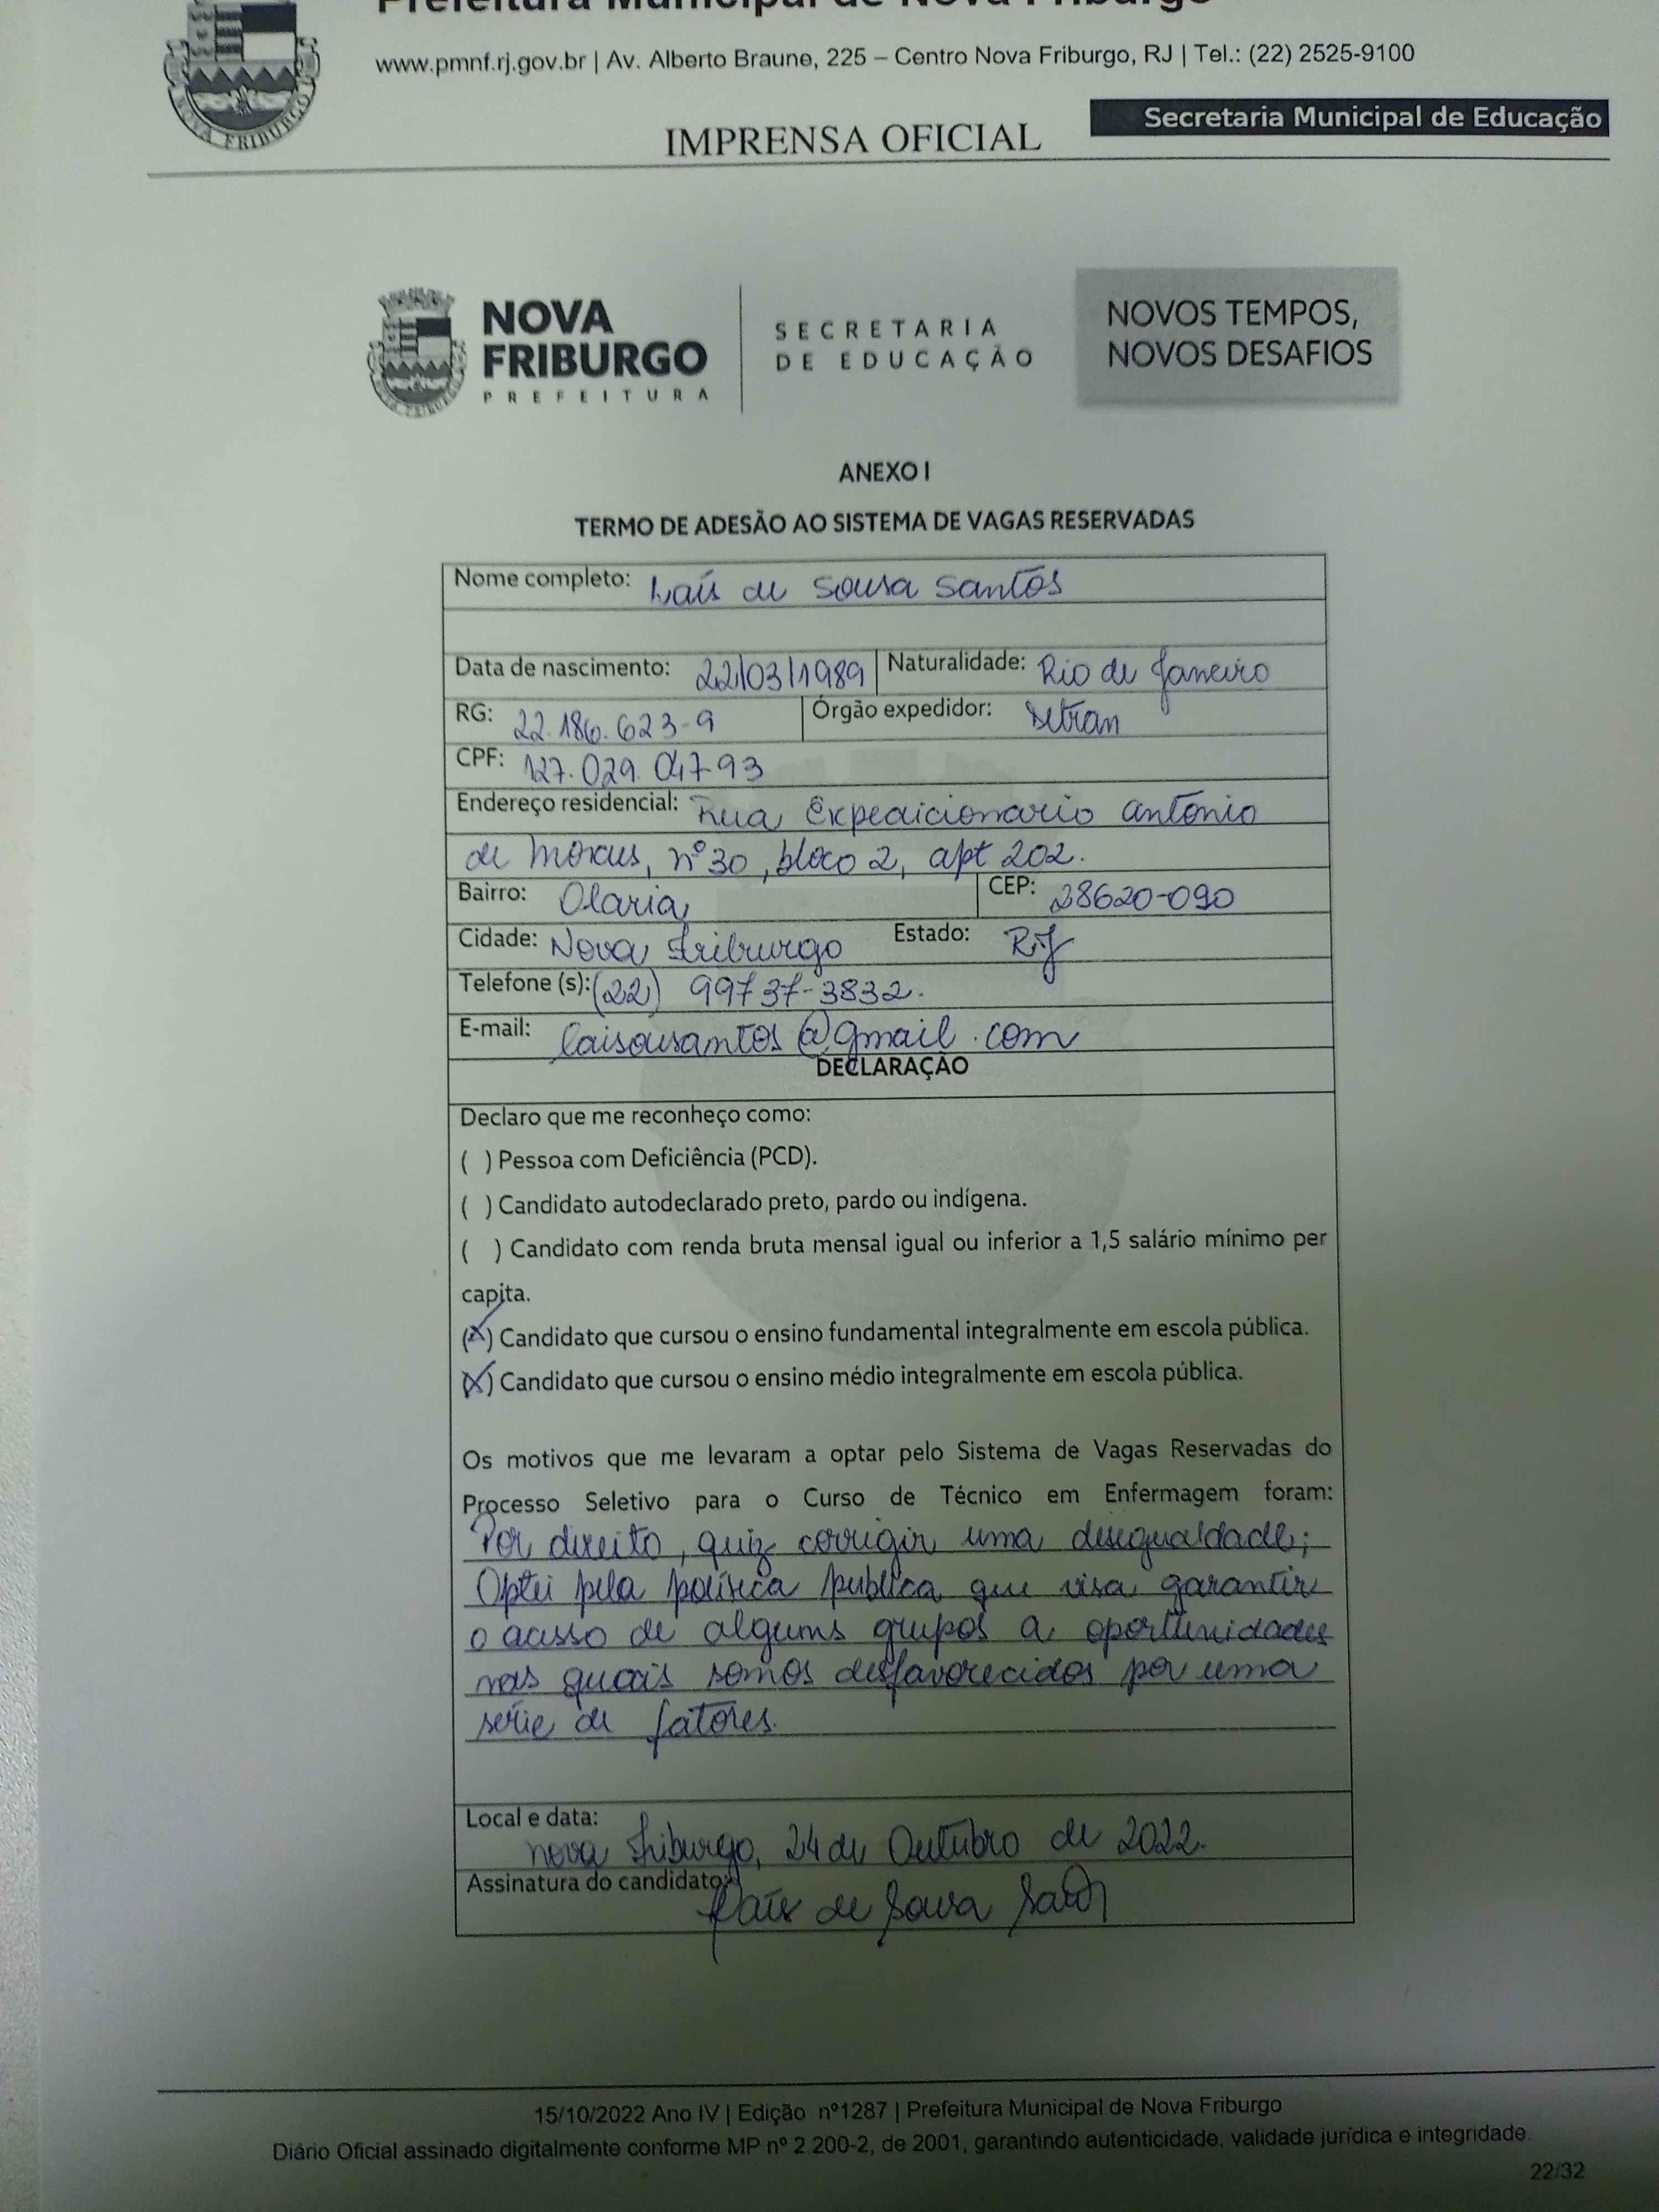 Prefeitura Municipal de Nova Friburgo
www.pmnf.rj.gov.br | Av. Alberto Braune, 225 – Centro Nova Friburgo, RJ | Tel.: (22) 2525-9100
Secretaria Municipal de Educação
IMPRENSA OFICIAL
NOVA FRIBURGO
NOVA
FRIBURGO
PREFEITURA
SECRETARIA
DE EDUCAÇÃO
NOVOS TEMPOS,
NOVOS DESAFIOS
ANEXO I
TERMO DE ADESÃO AO SISTEMA DE VAGAS RESERVADAS
Nome completo: Laís de Sousa Santos
Data de nascimento: 22/03/1989 Naturalidade: Rio de Janeiro
RG: 22.186.623-9 Órgão expedidor: Detran
CPF: 127.029.047-93
Endereço residencial: Rua Expedicionario Antônio
de Moraes, nº 30, bloco 2, apt 202.
Bairro: Olaria CEP: 28620-090
Cidade: Nova Friburgo Estado: RJ
Telefone (s): (22) 99737-3832.
E-mail: laisousantos@gmail.com
DECLARAÇÃO
Declaro que me reconheço como:
( ) Pessoa com Deficiência (PCD).
( ) Candidato autodeclarado preto, pardo ou indígena.
( ) Candidato com renda bruta mensal igual ou inferior a 1,5 salário mínimo per
capita.
(X) Candidato que cursou o ensino fundamental integralmente em escola pública.
(X) Candidato que cursou o ensino médio integralmente em escola pública.
Os motivos que me levaram a optar pelo Sistema de Vagas Reservadas do
Processo Seletivo para o Curso de Técnico em Enfermagem foram:
Por direito, quiz corrigir uma desegualdade;
Optei pela política publica que visa garantir
o acesso de alguns grupos a oportunidades
nas quais somos desfavorecidos por uma
série de fatores.
Local e data:
Nova Friburgo, 24 de Outubro de 2022.
Assinatura do candidato: Laís de Sousa
15/10/2022 Ano IV | Edição nº1287 | Prefeitura Municipal de Nova Friburgo
Diário Oficial assinado digitalmente conforme MP nº 2.200-2, de 2001, garantindo autenticidade, validade jurídica e integridade.
22/32